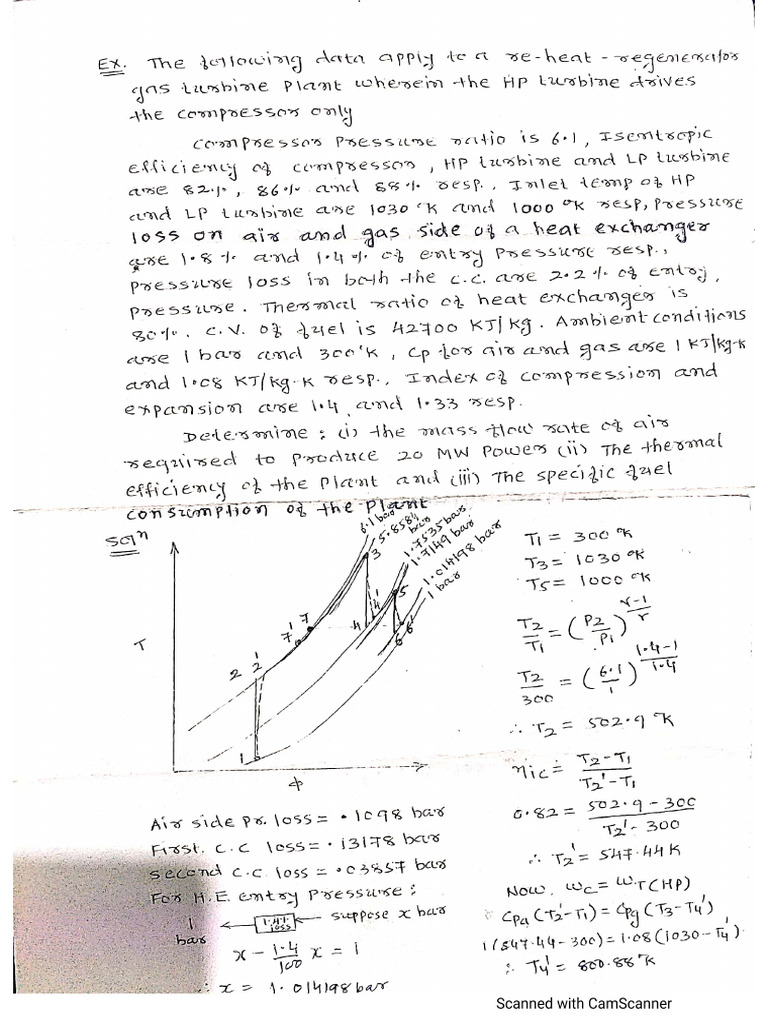 Ex. The following data apply to a re-heat-regenerator
gas turbine plant wherein the HP turbine drives
the compressor only
Compressor pressure ratio is 6.1, Isentropic
efficiency of compressor, HP turbine and LP turbine
are 82%, 86% and 88% resp., Inlet temp of HP
and LP turbine are 1030°K and 1000°K resp, pressure
loss on air and gas side of a heat exchanger
are 1.8% and 1.4% of entry pressure resp.,
pressure loss in both the c.c. are 2.2% of entry
pressure. Thermal ratio of heat exchanger is
80%. C.V. of fuel is 42700 KJ/kg. Ambient conditions
are 1 bar and 300°K, Cp for air and gas are 1 KJ/kg-k
and 1.08 KJ/kg.K resp., Index of compression and
expansion are 1.4 and 1.33 resp.
Determine: (i) the mass flow rate of air
required to produce 20 MW Power (ii) The thermal
efficiency of the plant and (iii) The specific fuel
consumption of the plant
Solⁿ
6.1 bar
5.8584 bar
1.7535 bar
1.7149 bar
1.014198 bar
1 bar
3
5
4 4'
6 6'
7' 7
2 2'
1
T
Φ
T1 = 300 °K
T3 = 1030 °K
T5 = 1000 °K
T2/T1 = (P2/P1)^(r-1/r)
T2/300 = (6.1/1)^(1.4-1/1.4)
∴ T2 = 502.9 °K
ηic = T2-T1/T2'-T1
0.82 = 502.9-300/T2'-300
∴ T2' = 547.44 K
Now, Wc = WT(HP)
Cpa (T2'-T1) = Cpg (T3-T4')
1(547.44-300) = 1.08(1030-T4')
∴ T4' = 800.88 °K
Air side pr. loss = .1098 bar
First. c.c loss = .13178 bar
second c.c. loss = .03857 bar
For H.E. entry pressure:
1 bar ← 1.4% loss ← suppose x bar
x - 1.4/100 x = 1
∴ x = 1.014198 bar
Scanned with CamScanner